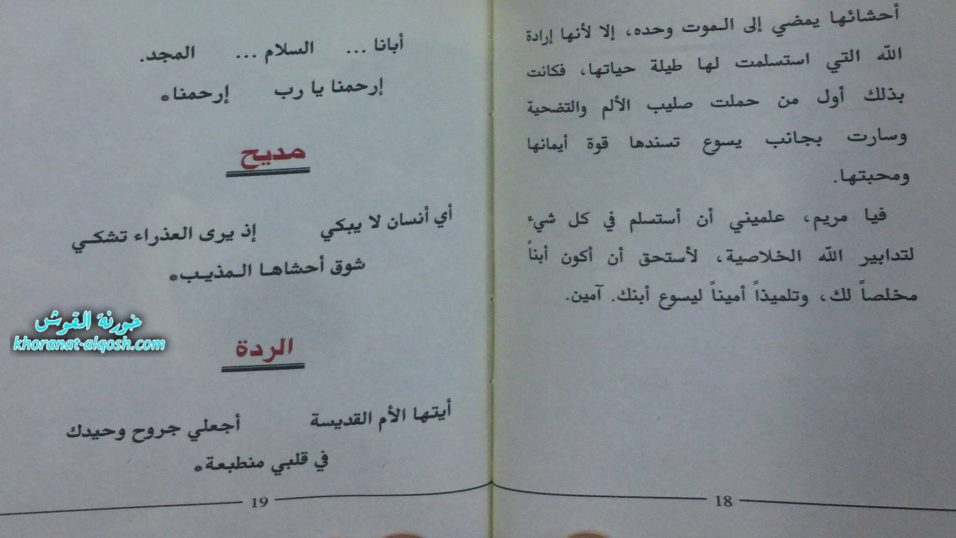 أحشائها يمضي إلى الـموت وحده، إلا لأنها إرادة
الله التي استسلمت لها طيلة حياتها، فكانت
بذلك أول من حملت صليب الألم والتضحية
وسارت بجانب يسوع تسندها قوة أيمانها
ومحبتها.
فيا مريم، علميني أن أستسلم في كل شيء
لتدابير الله الخلاصية، لأستحق أن أكون أبناً
مخلصاً لك، وتلميذاً أميناً ليسوع أبنك. آمين.
18
أبانا ... السلام ... المجد.
إرحمنا يا رب إرحمنا*
مديح
أي أنسان لا يبكي إذ يرى العذراء تشكـي
شوق أحشاهـا الـمذيـب*
الردة
أيتـها الأم القديسة أجعلي جروح وحيدك
في قلبي منطبعة*
19
خورنة القوش
khoranat-alqosh.com